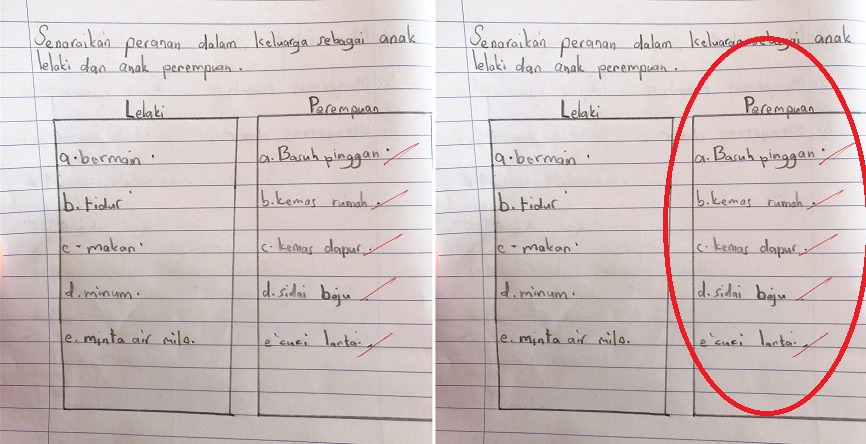 Senaraikan peranan dalam keluarga sebagai anak
lelaki dan anak perempuan.
Lelaki
a. bermain.
b. tidur
c - makan
d. minum.
e. minta air milo.
Perempuan
a. Basuh pinggan.
b. kemas rumah.
c. kemas dapur.
d. sidai baju
e. cuci lantai.
Senaraikan peranan dalam keluarga sebagai anak
lelaki dan anak perempuan.
Lelaki
a. bermain.
b. tidur
c - makan
d. minum.
e. minta air milo.
Perempuan
a. Basuh pinggan.
b. kemas rumah.
c. kemas dapur.
d. sidai baju
e. cuci lantai.